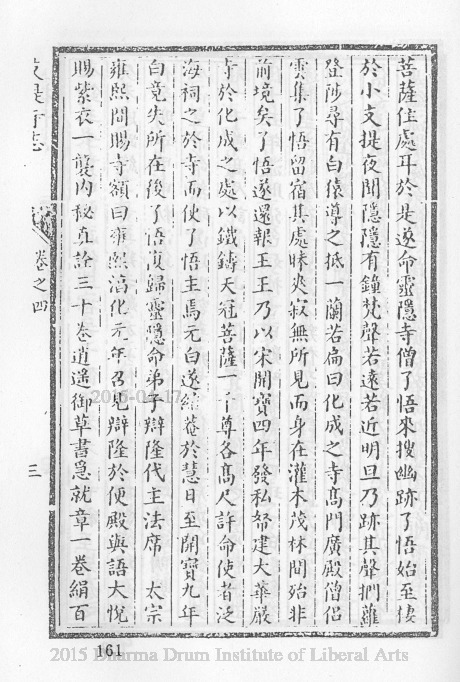 菩薩住處耳於是遂命靈隱寺僧了悟來搜幽跡了悟始至棲
於小支提夜聞隱隱有鐘梵聲若遠若近明旦乃跡其聲捫蘿
登陟尋有白猿導之抵一蘭若扁曰化成之寺高門廣殿僧侶
雲集了悟留宿其處昧爽寂無所見而身在灌木茂林間殆非
前境矣了悟遂還報王王乃以宋開寶四年發私帑建大華嚴
寺於化成之處以鐵鑄天冠菩薩一千尊各高尺許命使者泛
海祠之於寺而使了悟主焉元白遂結菴於慧日至開寶九年
白竟失所在後了悟復歸靈隱命弟子辯隆代主法席 太宗
雍熙間賜寺額曰雍熙淳化元年召見辯隆於便殿與語大悅
賜紫衣一襲內秘真詮三十卷逍遙御草書急就章一卷絹百
支提寺志 卷之四 三
2015-04-17
161
2015 Dharma Drum Institute of Liberal Arts